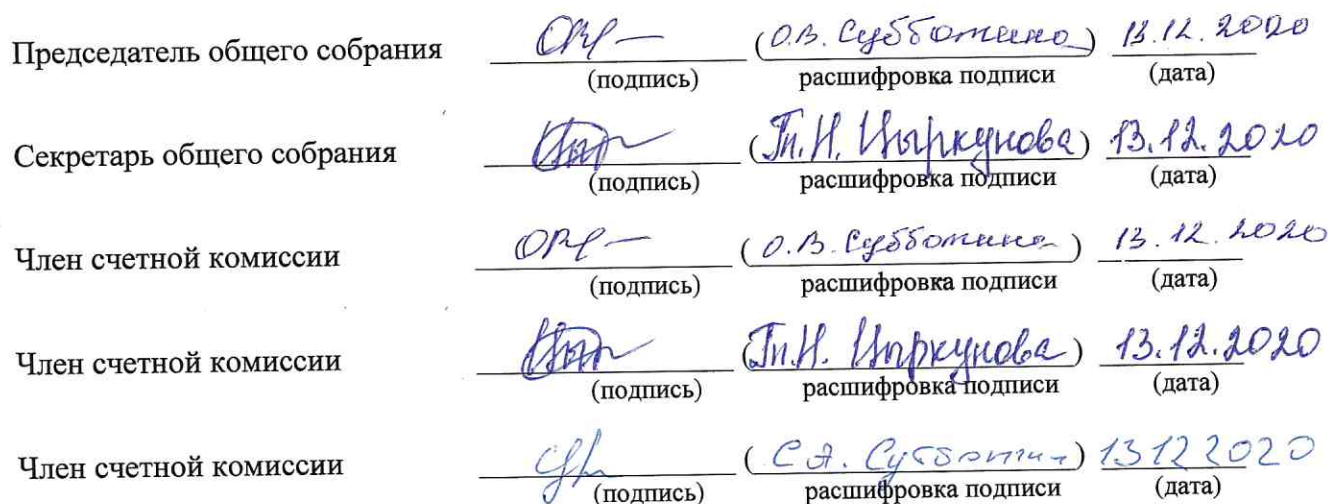 Председатель общего собрания (О.В. Субботина) 13.12.2020
(подпись) расшифровка подписи (дата)
Секретарь общего собрания (Т.Н. Цыркунова) 13.12.2020
(подпись) расшифровка подписи (дата)
Член счетной комиссии (О.В. Субботина) 13.12.2020
(подпись) расшифровка подписи (дата)
Член счетной комиссии (Т.Н. Цыркунова) 13.12.2020
(подпись) расшифровка подписи (дата)
Член счетной комиссии (С.А. Субботин) 13 12 2020
(подпись) расшифровка подписи (дата)